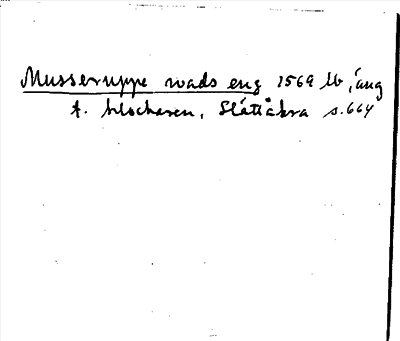 Musseruppe wads eng 1569 lb, äng
t. klockaren, Slättåkra s.664